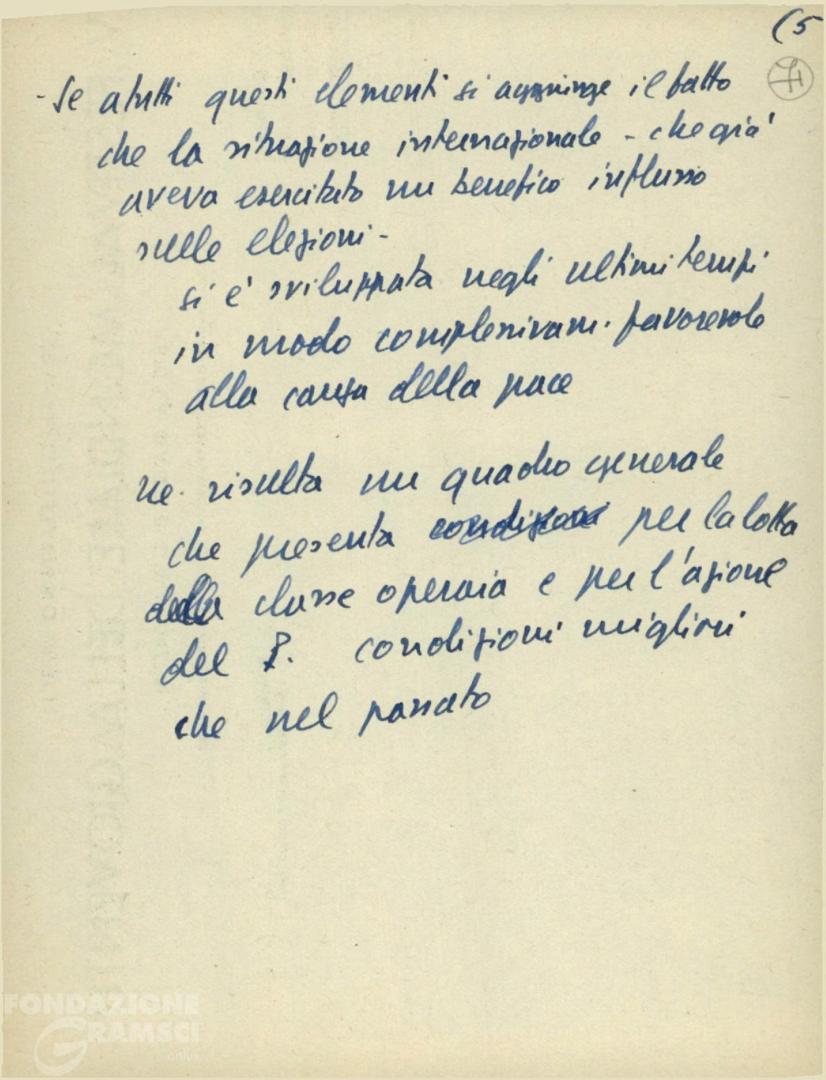 (5
- Se a tutti questi elementi si aggiunge il fatto
che la situazione internazionale - che già
aveva esercitato un benefico influsso
sulle elezioni -
si è sviluppata negli ultimi tempi
in modo complessivam. favorevole
alla causa della pace
ne risulta un quadro generale
che presenta condizioni per la lotta
della classe operaia e per l'azione
del P. condizioni migliori
che nel passato
FONDAZIONE
GRAMSCI
onlus